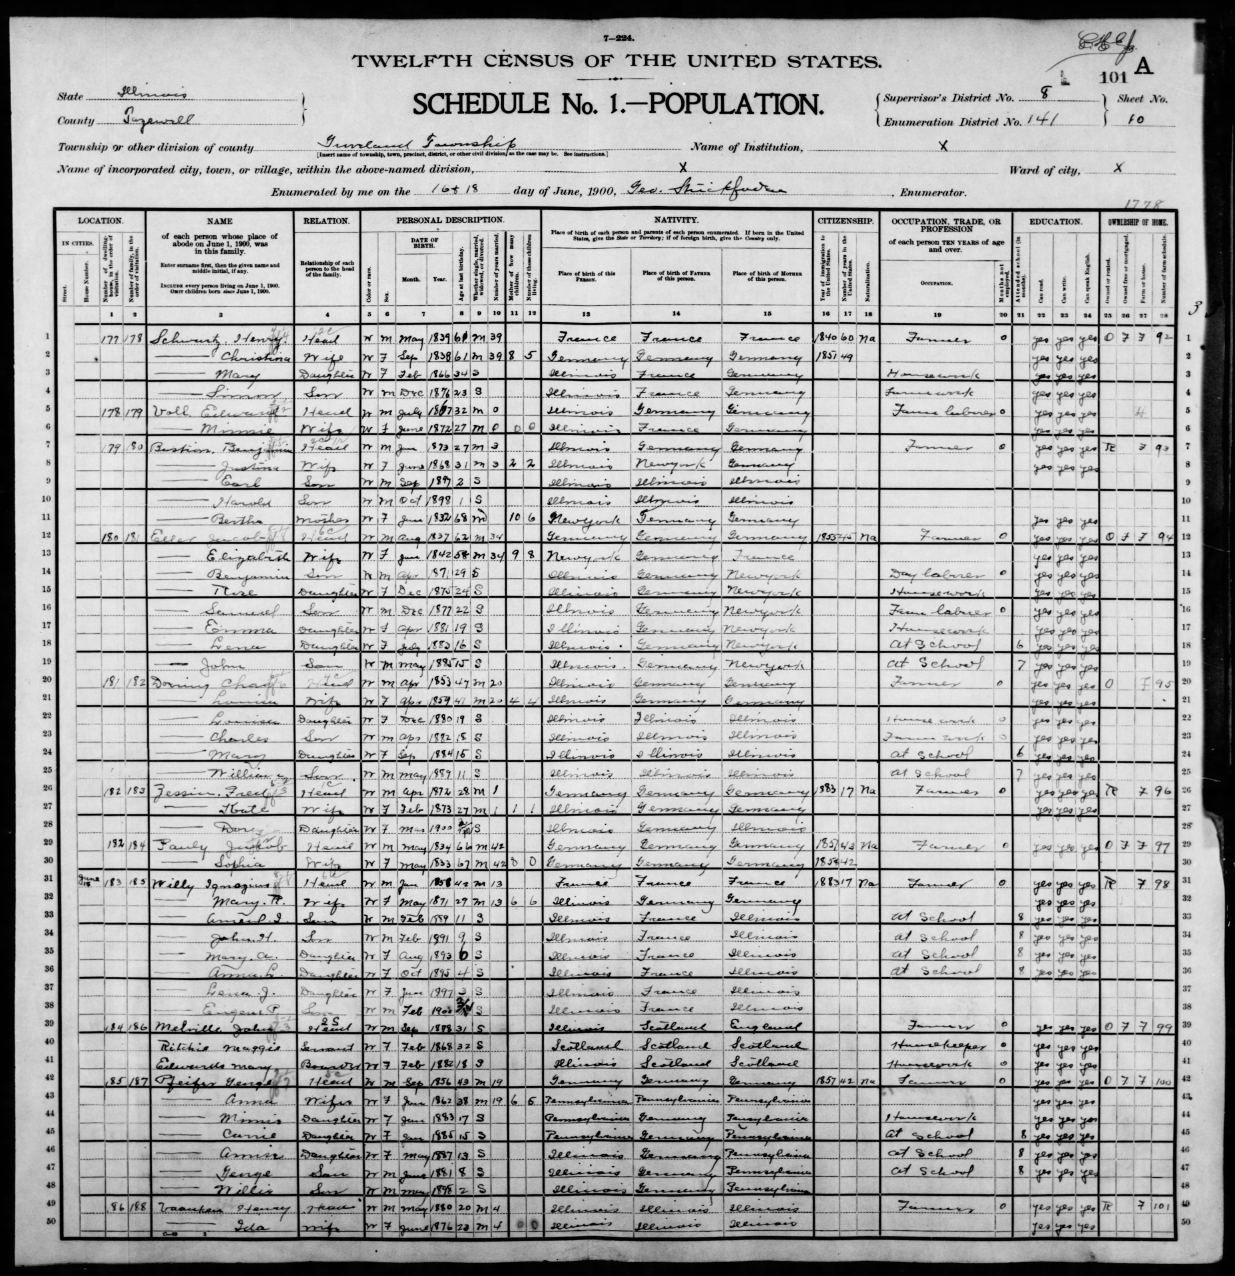 7—224.
TWELFTH CENSUS OF THE UNITED STATES.
101 A
State Illinois
SCHEDULE No. 1.—POPULATION.
Supervisor's District No. 8 Sheet No.
County Tazewell
Enumeration District No. 141 10
Township or other division of county Township Name of Institution, X
[Insert name of township, town, precinct, district, or other civil division, as the case may be. See instructions.]
Name of incorporated city, town, or village, within the above-named division, X Ward of city, X
Enumerated by me on the 16 & 18 day of June, 1900, Geo. Enumerator.
1778
LOCATION. NAME RELATION. PERSONAL DESCRIPTION. NATIVITY. CITIZENSHIP. OCCUPATION, TRADE, OR PROFESSION EDUCATION. OWNERSHIP OF HOME.
IN CITIES.
Street. House Number.
of each person whose place of abode on June 1, 1900, was in this family.
Enter surname first, then the given name and middle initial, if any.
INCLUDE every person living on June 1, 1900. OMIT children born since June 1, 1900.
Relationship of each person to the head of the family.
DATE OF BIRTH.
Month. Year.
Place of birth of each person and parents of each person enumerated. If born in the United States, give the State or Territory; if of foreign birth, give the Country only.
Place of birth of this PERSON. Place of birth of FATHER of this person. Place of birth of MOTHER of this person.
of each person TEN YEARS of age and over.
OCCUPATION.
1 2 3 4 5 6 7 8 9 10 11 12 13 14 15 16 17 18 19 20 21 22 23 24 25 26 27 28
1 177 178 Schwartz, Henry Head W M May 1839 61 M 39 France France France 1840 60 Na Farmer 0 yes yes yes O F F 92 1
2 — Christina Wife W F Sep 1838 61 M 39 8 5 Germany Germany Germany 1851 49 yes yes yes 2
3 — Mary Daughter W F Feb 1866 34 S Illinois France Germany Housework yes yes yes 3
4 — Simon Son W M Dec 1876 23 S Illinois France Germany Farm work yes yes yes 4
5 178 179 Voll Edward Head W M July 1867 32 M 0 Illinois Germany Germany Farm laborer 0 yes yes yes 5
6 — Minnie Wife W F June 1872 27 M 0 0 0 Illinois France Germany yes yes yes 6
7 179 180 Benjamin Head W M Jan 1873 27 M 3 Illinois Germany Germany Farmer 0 yes yes yes R F 93 7
8 — Justina Wife W F June 1868 31 M 3 2 2 Illinois Newyork Germany yes yes yes 8
9 — Earl Son W M Sep 1897 2 S Illinois Illinois Illinois 9
10 — Harold Son W M Oct 1898 1 S Illinois Illinois Illinois 10
11 — Bertha Mother W F Jan 1832 68 Wd 10 6 Newyork Germany Germany yes yes yes 11
12 180 181 Jacob Head W M Aug 1837 62 M 34 Germany Germany Germany 1855 45 Na Farmer 0 yes yes yes O F F 94 12
13 — Elizabeth Wife W F Jan 1842 58 M 34 9 8 Newyork Germany France yes yes yes 13
14 — Benjamin Son W M Apr 1871 29 S Illinois Germany Newyork Day laborer 0 yes yes yes 14
15 — Daughter W F Dec 1875 24 S Illinois Germany Newyork Housework yes yes yes 15
16 — Samuel Son W M Dec 1877 22 S Illinois Germany Newyork Farm laborer 0 yes yes yes 16
17 — Emma Daughter W F Apr 1881 19 S Illinois Germany Newyork Housework yes yes yes 17
18 — Lena Daughter W F July 1883 16 S Illinois Germany Newyork At School 6 yes yes yes 18
19 — John Son W M May 1885 15 S Illinois Germany Newyork at School 7 yes yes yes 19
20 181 182 Head W M Apr 1853 47 M 20 Germany Germany Germany Farmer 0 yes yes yes O F 95 20
21 — Louisa Wife W F Apr 1859 41 M 20 4 4 Illinois Germany Germany yes yes yes 21
22 — Louisa Daughter W F Dec 1880 19 S Illinois Illinois Illinois House work 0 yes yes yes 22
23 — Charles Son W M Apr 1882 18 S Illinois Illinois Illinois Farm work 0 yes yes yes 23
24 — Mary Daughter W F Sep 1884 15 S Illinois Illinois Illinois at School 6 yes yes yes 24
25 — William Son W M May 1889 11 S Illinois Illinois Illinois at School 7 yes yes yes 25
26 182 183 Fred Head W M Apr 28 M 1 Germany Germany Germany 1883 17 Na Farmer 0 yes yes yes R F 96 26
27 — Kate Wife W F Feb 1873 27 M 1 1 1 Illinois Germany Germany yes yes yes 27
28 — Daughter W F Mar 1900 S Illinois Germany Illinois 28
29 182 184 Pauly Jacob Head W M May 1834 66 M 42 Germany Germany Germany 1857 43 Na Farmer 0 yes yes yes O F F 97 29
30 — Sophia Wife W F May 1833 67 M 42 0 0 Germany Germany Germany 1858 42 yes yes yes 30
31 June 18 183 185 Willy Ignazius Head W M Jan 1858 42 M 13 France France France 1883 17 Na Farmer 0 yes yes yes R F 98 31
32 — Mary. R. Wife W F May 1871 29 M 13 6 6 Illinois Germany Germany yes yes yes 32
33 — Son W M Feb 1889 11 S Illinois France Illinois at School 8 yes yes yes 33
34 — John. H. Son W M Feb 1891 9 S Illinois France Illinois at School 8 yes yes yes 34
35 — Mary. A. Daughter W F Aug 1893 6 S Illinois France Illinois at School 8 yes yes yes 35
36 — Anna. L. Daughter W F Oct 1895 4 S Illinois France Illinois at School 8 yes yes yes 36
37 — Lena. J. Daughter W F Jan 1897 3 S Illinois France Illinois 37
38 — Eugene P. Son W M Feb 1900 S Illinois France Illinois 38
39 184 186 Melville John Head W M Sep 1868 31 S Illinois Scotland England Farmer 0 yes yes yes O F F 99 39
40 Ritchie Maggie Servant W F Feb 1868 32 S Scotland Scotland Scotland Housekeeper 0 yes yes yes 40
41 Edwards Mary Boarder W F Feb 1882 18 S Illinois Scotland Scotland Housework yes yes yes 41
42 185 187 Pfeifer George Head W M Sep 1856 43 M 19 Germany Germany Germany 1857 42 Na Farmer 0 yes yes yes O F F 100 42
43 — Anna Wife W F Jan 1862 38 M 19 6 5 Pennsylvania Pennsylvania Pennsylvania yes yes yes 43
44 — Minnie Daughter W F Jan 1883 17 S Pennsylvania Germany Pennsylvania Housework yes yes yes 44
45 — Carrie Daughter W F Jan 1885 15 S Pennsylvania Germany Pennsylvania at School 8 yes yes yes 45
46 — Annie Daughter W F May 1887 13 S Illinois Germany Pennsylvania at School 8 yes yes yes 46
47 — George Son W M June 8 S Illinois Germany Pennsylvania at School 8 yes yes yes 47
48 — Willie Son W M May 1898 2 S Illinois Germany Pennsylvania 48
49 186 188 Henry Head W M May 1880 20 M 4 Illinois Illinois Illinois Farmer 0 yes yes yes R F 101 49
50 — Ida Wife W F June 1876 23 M 4 0 0 Illinois Illinois Illinois yes yes yes 50